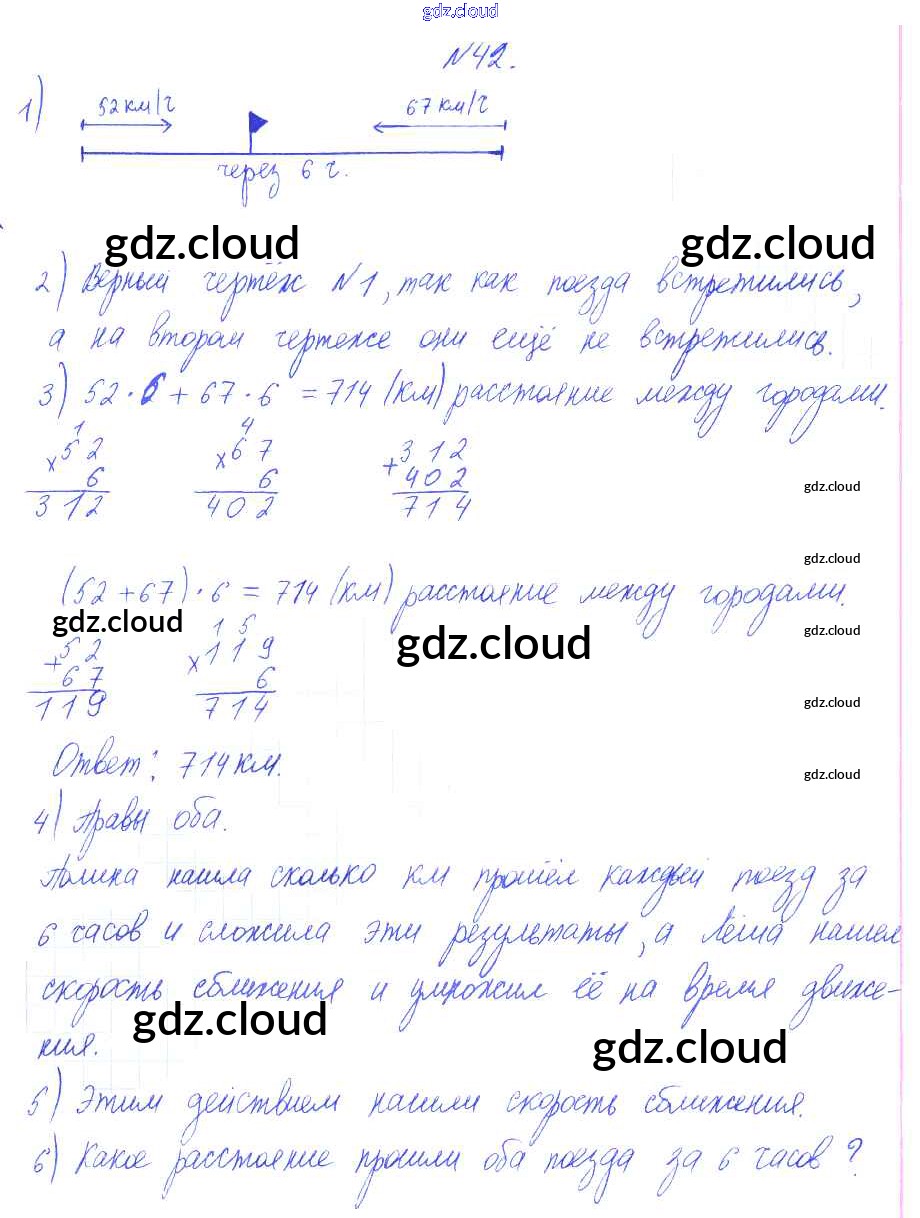 gdz.cloud
№42.
1) 52 км/ч 67 км/ч
через 6 ч.
gdz.cloud gdz.cloud
2) Верный чертёж №1, так как поезда встретились,
а на втором чертеже они ещё не встретились.
3) 52 · 6 + 67 · 6 = 714 (км) расстояние между городами.
1 4
× 52 × 67 + 312
6 6 402 gdz.cloud
312 402 714
gdz.cloud
(52 + 67) · 6 = 714 (км) расстояние между городами.
gdz.cloud 1 5 gdz.cloud gdz.cloud
+ 52 × 119
67 6
119 714 gdz.cloud
Ответ: 714 км. gdz.cloud
4) Правы оба.
Полина нашла сколько км прошёл каждый поезд за
6 часов и сложила эти результаты, а Лёша нашел
скорость сближения и умножил её на время движе-
ния. gdz.cloud gdz.cloud
5) Этим действием нашли скорость сближения.
6) Какое расстояние прошли оба поезда за 6 часов?